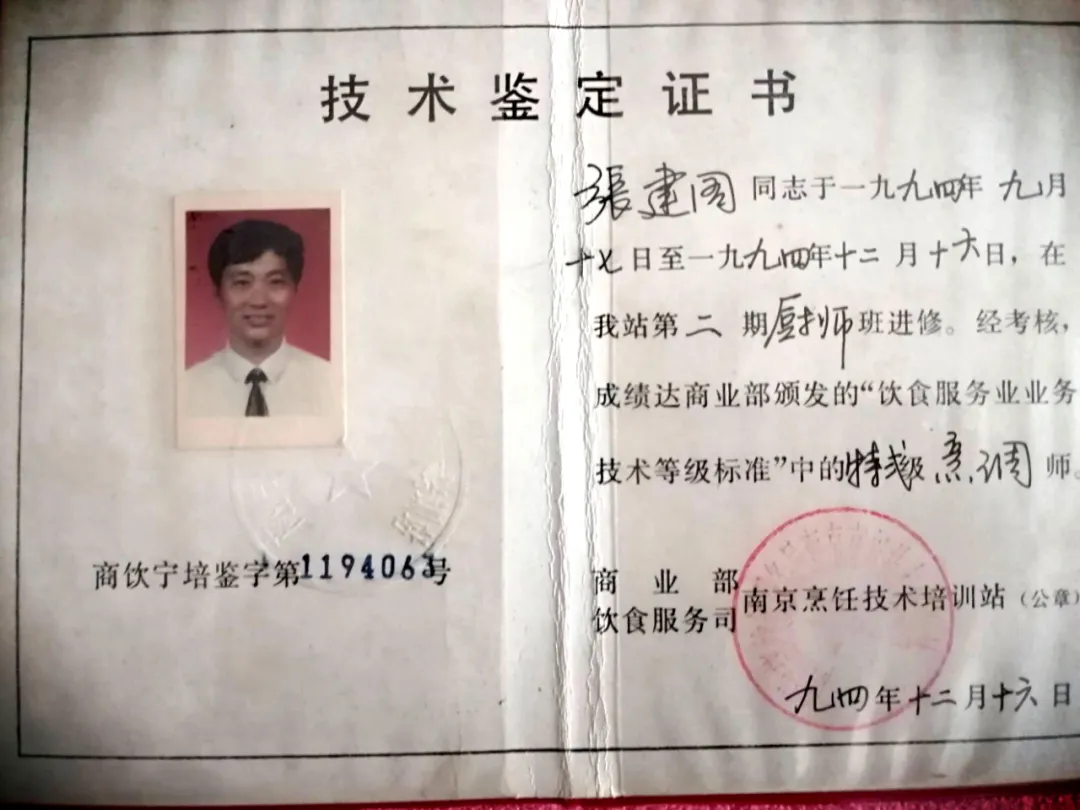 技术鉴定证书
張建阁同志于一九九四年九月
十七日至一九九四年十二月十六日，在
我站第二期厨师班进修。经考核，
成绩达商业部颁发的“饮食服务业业务
技术等级标准”中的特级烹调师。
商饮宁培鉴字第1194063号
商业部
饮食服务司
南京烹饪技术培训站（公章）
九四年十二月十六日